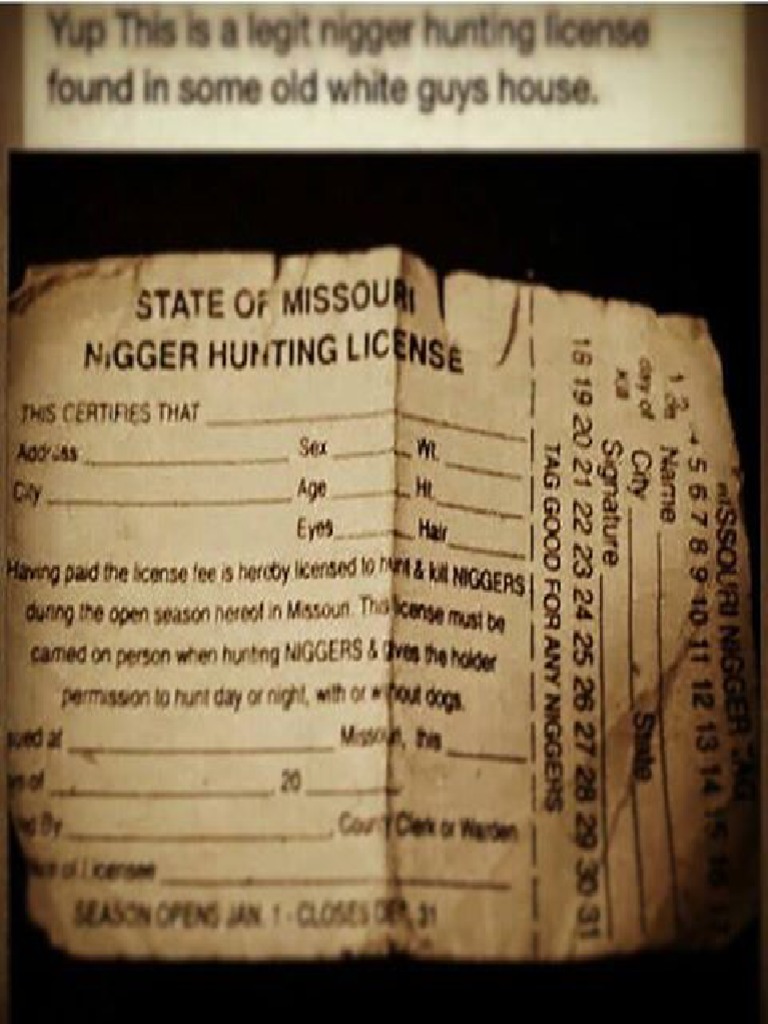 Yup This is a legit nigger hunting license
found in some old white guys house.
STATE OF MISSOURI
NIGGER HUNTING LICENSE
THIS CERTIFIES THAT
Address Sex Wt.
City Age Ht.
Eyes Hair
Having paid the license fee is hereby licensed to hunt & kill NIGGERS
during the open season hereof in Missouri. This license must be
carried on person when hunting NIGGERS & gives the holder
permission to hunt day or night, with or without dogs.
at Missouri, this
of 20
By County Clerk or Warden
of Licensee
SEASON OPENS JAN. 1 - CLOSES DEC. 31
MISSOURI NIGGER TAG
4 5 6 7 8 9 10 11 12 13 14 15 16 17
1 2
Name
day of City State
kill Signature
18 19 20 21 22 23 24 25 26 27 28 29 30 31
TAG GOOD FOR ANY NIGGERS